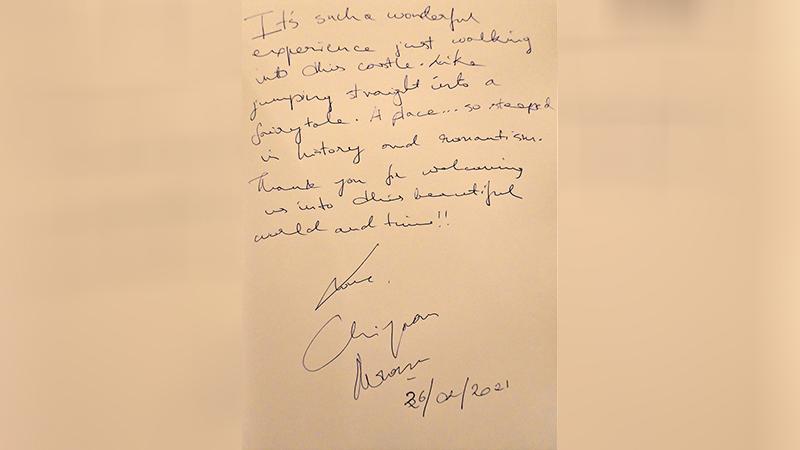 It's such a wonderful
experience just walking
into this castle. Like
jumping straight into a
fairytale. A place... so steeped
in history and romantism.
Thank you for welcoming
us into this beautiful
world and time!!
Love.
26/02/2021